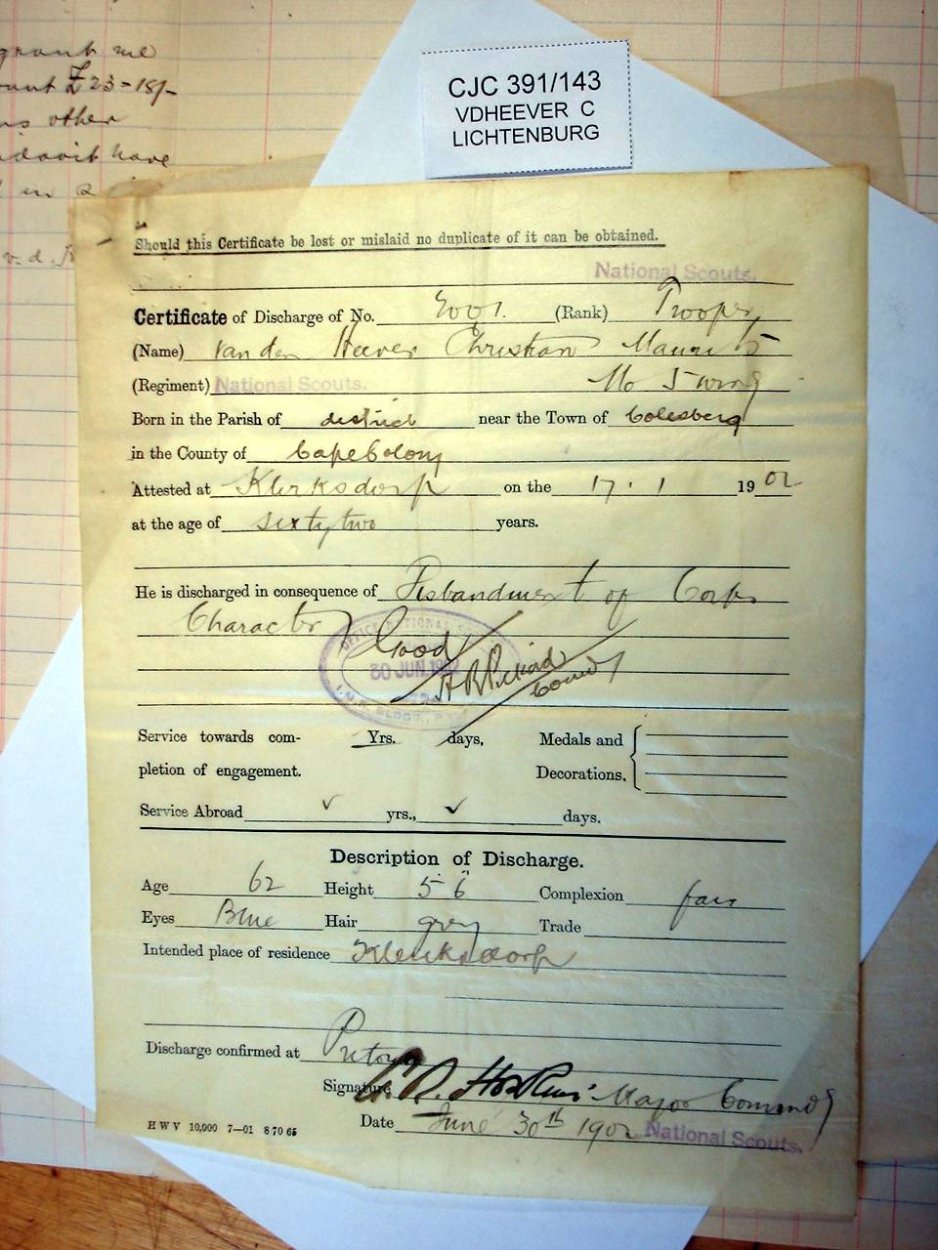 grant me
£23-18/-
other
have
in a
v. d.
CJC 391/143
VDHEEVER C
LICHTENBURG
Should this Certificate be lost or mislaid no duplicate of it can be obtained.
National Scouts.
Certificate of Discharge of No. (Rank) Trooper
(Name) Van den Heever Christian Maurits
(Regiment) National Scouts. Wing
Born in the Parish of district near the Town of Colesberg
in the County of Cape Colony
Attested at Klerksdorp on the 17.1 1902
at the age of sixty two years.
He is discharged in consequence of Disbandment of Corps
Character Good
30 JUN 1902
Service towards com- Yrs. days, Medals and
pletion of engagement. Decorations.
Service Abroad ✓ yrs., ✓ days.
Description of Discharge.
Age 62 Height 5' 6" Complexion fair
Eyes Blue Hair grey Trade
Intended place of residence Klerksdorp
Discharge confirmed at Pretoria
Signature Major Commdg
Date June 30th 1902 National Scouts.
H W V 10,000 7—01 8 70 65